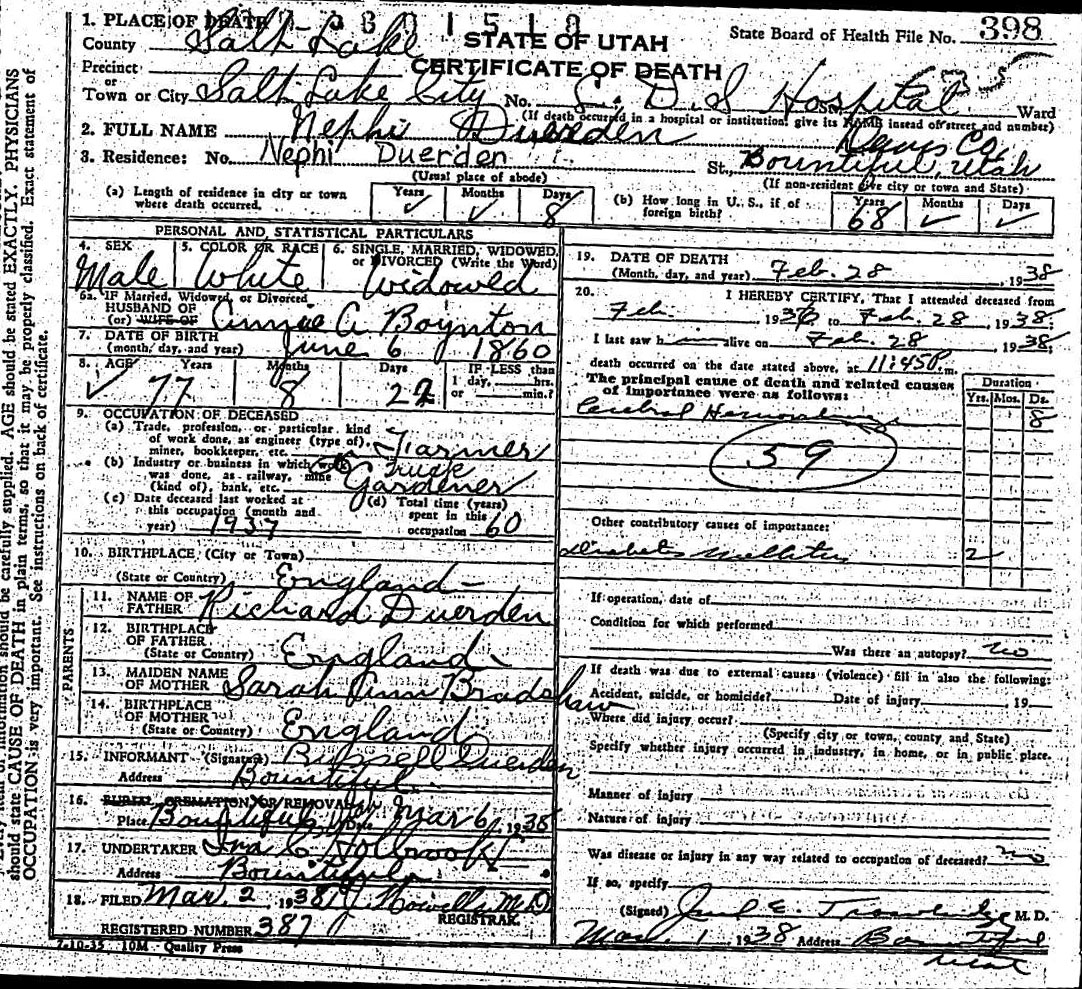 1. PLACE OF DEATH
State Board of Health File No. 398
County Salt Lake
STATE OF UTAH
Precinct
CERTIFICATE OF DEATH
or
Town or City Salt Lake City No. L. D. S Hospital St. Ward
(If death occurred in a hospital or institution, give its NAME insead of street and number)
2. FULL NAME Nephi Duerden
Davis Co,
3. Residence: No. Nephi Duerden St., Bountiful, Utah
(Usual place of abode)
(If non-resident give city or town and State)
(a) Length of residence in city or town where death occurred. Years ✓ Months ✓ Days 8
(b) How long in U. S., if of foreign birth? Years 68 Months ✓ Days ✓
PERSONAL AND STATISTICAL PARTICULARS
4. SEX 5. COLOR OR RACE 6. SINGLE, MARRIED, WIDOWED, or DIVORCED (Write the Word)
Male White Widowed
6a. IF Married, Widowed, or Divorced
HUSBAND OF
(or) WIFE OF Annie A Boynton
7. DATE OF BIRTH
(month, day, and year) June 6 1860
8. AGE Years Months Days IF LESS than
1 day, hrs.
or min.?
✓ 77 8 22
9. OCCUPATION OF DECEASED
(a) Trade, profession, or particular kind
of work done, as engineer (type of),
miner, bookkeeper, etc. Farmer
(b) Industry or business in which work
was done, as railway, mine
(kind of), bank, etc. Truck Gardener
(c) Date deceased last worked at
this occupation (month and
year) 1937
(d) Total time (years)
spent in this
occupation 60
10. BIRTHPLACE (City or Town)
(State or Country) England
PARENTS
11. NAME OF
FATHER Richard Duerden
12. BIRTHPLACE
OF FATHER
(State or Country) England
13. MAIDEN NAME
OF MOTHER Sarah Ann Bradshaw
14. BIRTHPLACE
OF MOTHER
(State or Country) England
15. INFORMANT (Signature) Russell Duerden
Address Bountiful
16. BURIAL, CREMATION OR REMOVAL
Place Bountiful Date Mar 6, 1938
17. UNDERTAKER Ira C Holbrook
Address Bountiful
18. FILED Mar. 2, 1938 Howells M.D
REGISTRAR.
REGISTERED NUMBER 387
7-10-35 10M - Quality Press
19. DATE OF DEATH
(Month, day, and year) Feb. 28, 1938
20. I HEREBY CERTIFY, That I attended deceased from
Feb. to Feb. 28, 1938;
I last saw him alive on Feb. 28, 1938;
death occurred on the date stated above, at 11:45 P.m.
The principal cause of death and related causes
of importance were as follows:
Duration
Yrs. Mos. Ds.
Cerebral Hemorrhage 8
59
Other contributory causes of importance:
Diabetes Mellitus 2
If operation, date of
Condition for which performed
Was there an autopsy? no
If death was due to external causes (violence) fill in also the following:
Accident, suicide, or homicide? Date of injury, 19
Where did injury occur?
(Specify city or town, county and State)
Specify whether injury occurred in industry, in home, or in public place.
Manner of injury
Nature of injury
Was disease or injury in any way related to occupation of deceased? no
If so, specify
(Signed) E. Trowbridge M. D.
Mar. 1 1938 Address Bountiful
Utah
information should be carefully supplied. AGE should be stated EXACTLY. PHYSICIANS
should state CAUSE OF DEATH in plain terms, so that it may be properly classified. Exact statement of
OCCUPATION is very important. See instructions on back of certificate.